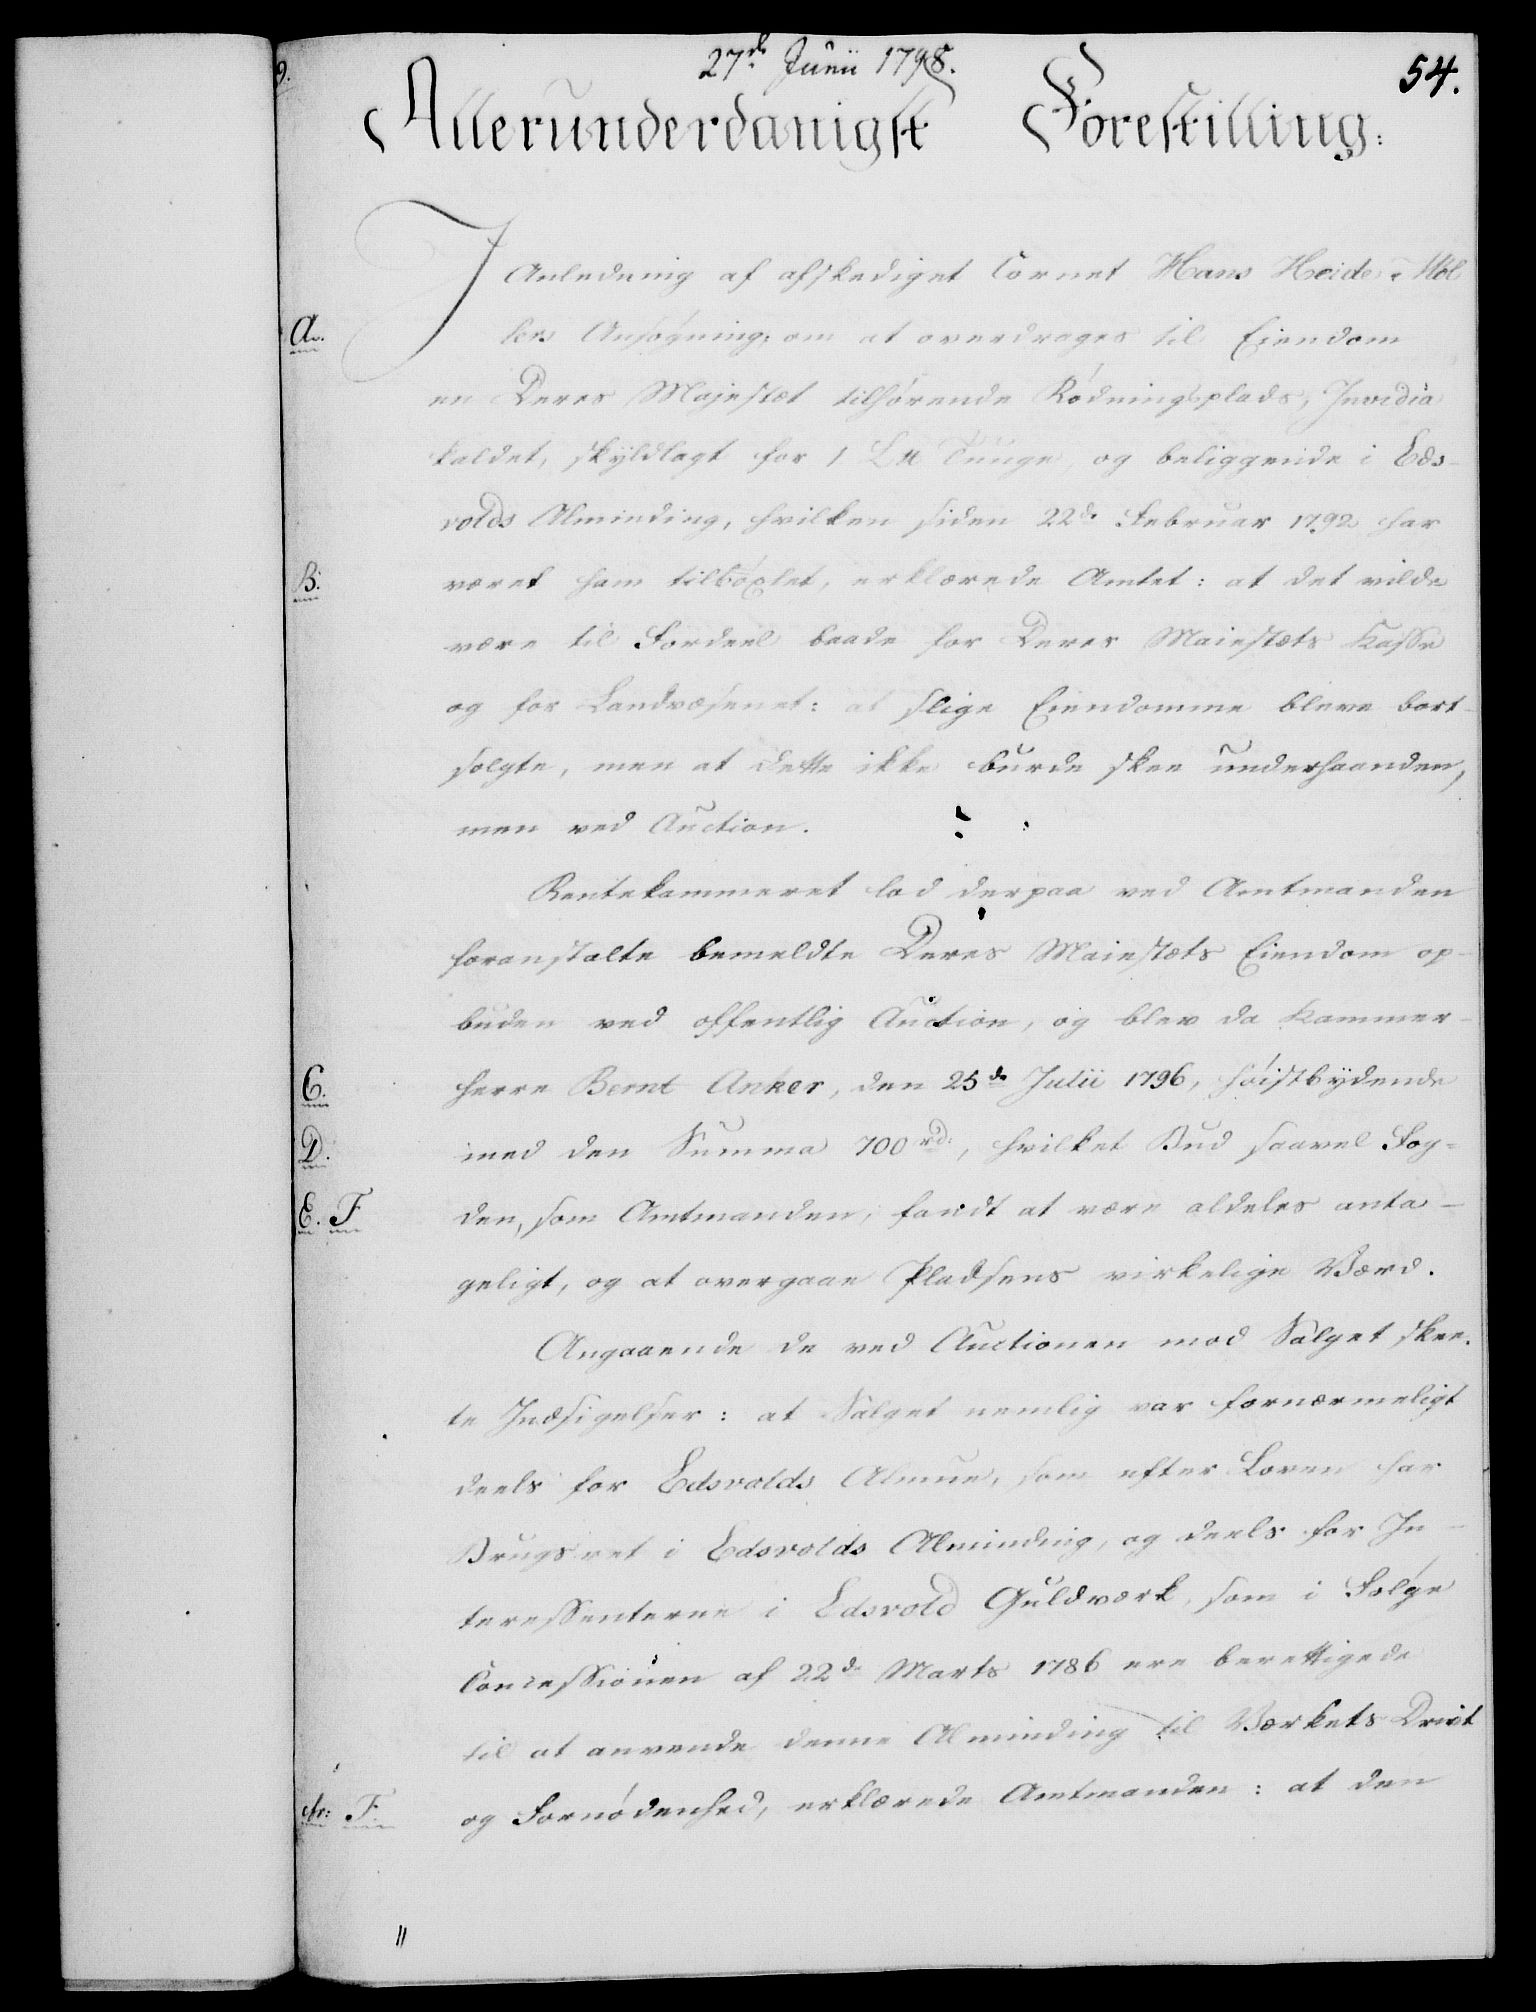 27de Junii 1798.
54.
Allerunderdanigst Forestilling:
I Anledning af afskediget Cornet Hans Heide Möl
A. lers Ansøgning, om at overdrages til Eiendom
en Deres Majestæt tilhørende Rødningsplads, Invidia
kaldet, skyldlagt for 1 L℔ Tunge, og beliggende i Eds-
volds Alminding, hvilken siden 22de Februar 1792 har
B. været ham tilböxlet, erklærede Amtet: at det vilde
være til Fordeel baade for Deres Maiestæts Kasse
og for Landvæsenet: at slige Eiendomme bleve bort-
solgte, men at dette ikke burde skee underhaanden,
men ved Auction.
Rentekammeret lod derpaa ved Amtmanden
foranstalte bemeldte Deres Maiestæts Eiendom op-
buden ved offentlig Auction, og blev da Kammer-
C. herre Bernt Anker, den 25de Julii 1796, höistbydende
D. med den Summa 700 rd:, hvilket Bud saavel Fog-
E. F. den, som Amtmanden, fandt at være aldeles anta-
geligt, og at overgaae Pladsens virkelige Værd.
Angaaende de ved Auctionen mod Salget skee-
te Indsigelser: at Salget nemlig var fornærmeligt
deels for Edsvolds Almue, som efter Loven har
Brugsret i Edsvolds Alminding, og deels for In-
teressenterne i Edsvold Guldværk, som i Følge
Concessionen af 22de Marts 1786 ere berettigede
til at anvende denne Alminding til Værkets Drivt
cfr: F. og Fornødenhed, erklærede Amtmanden: at den